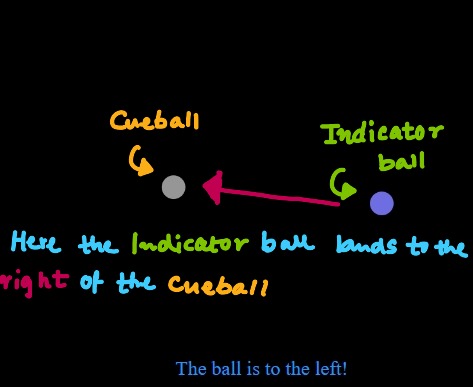 Cueball
Indicator
ball
Here the Indicator ball lands to the
right of the Cueball
The ball is to the left!